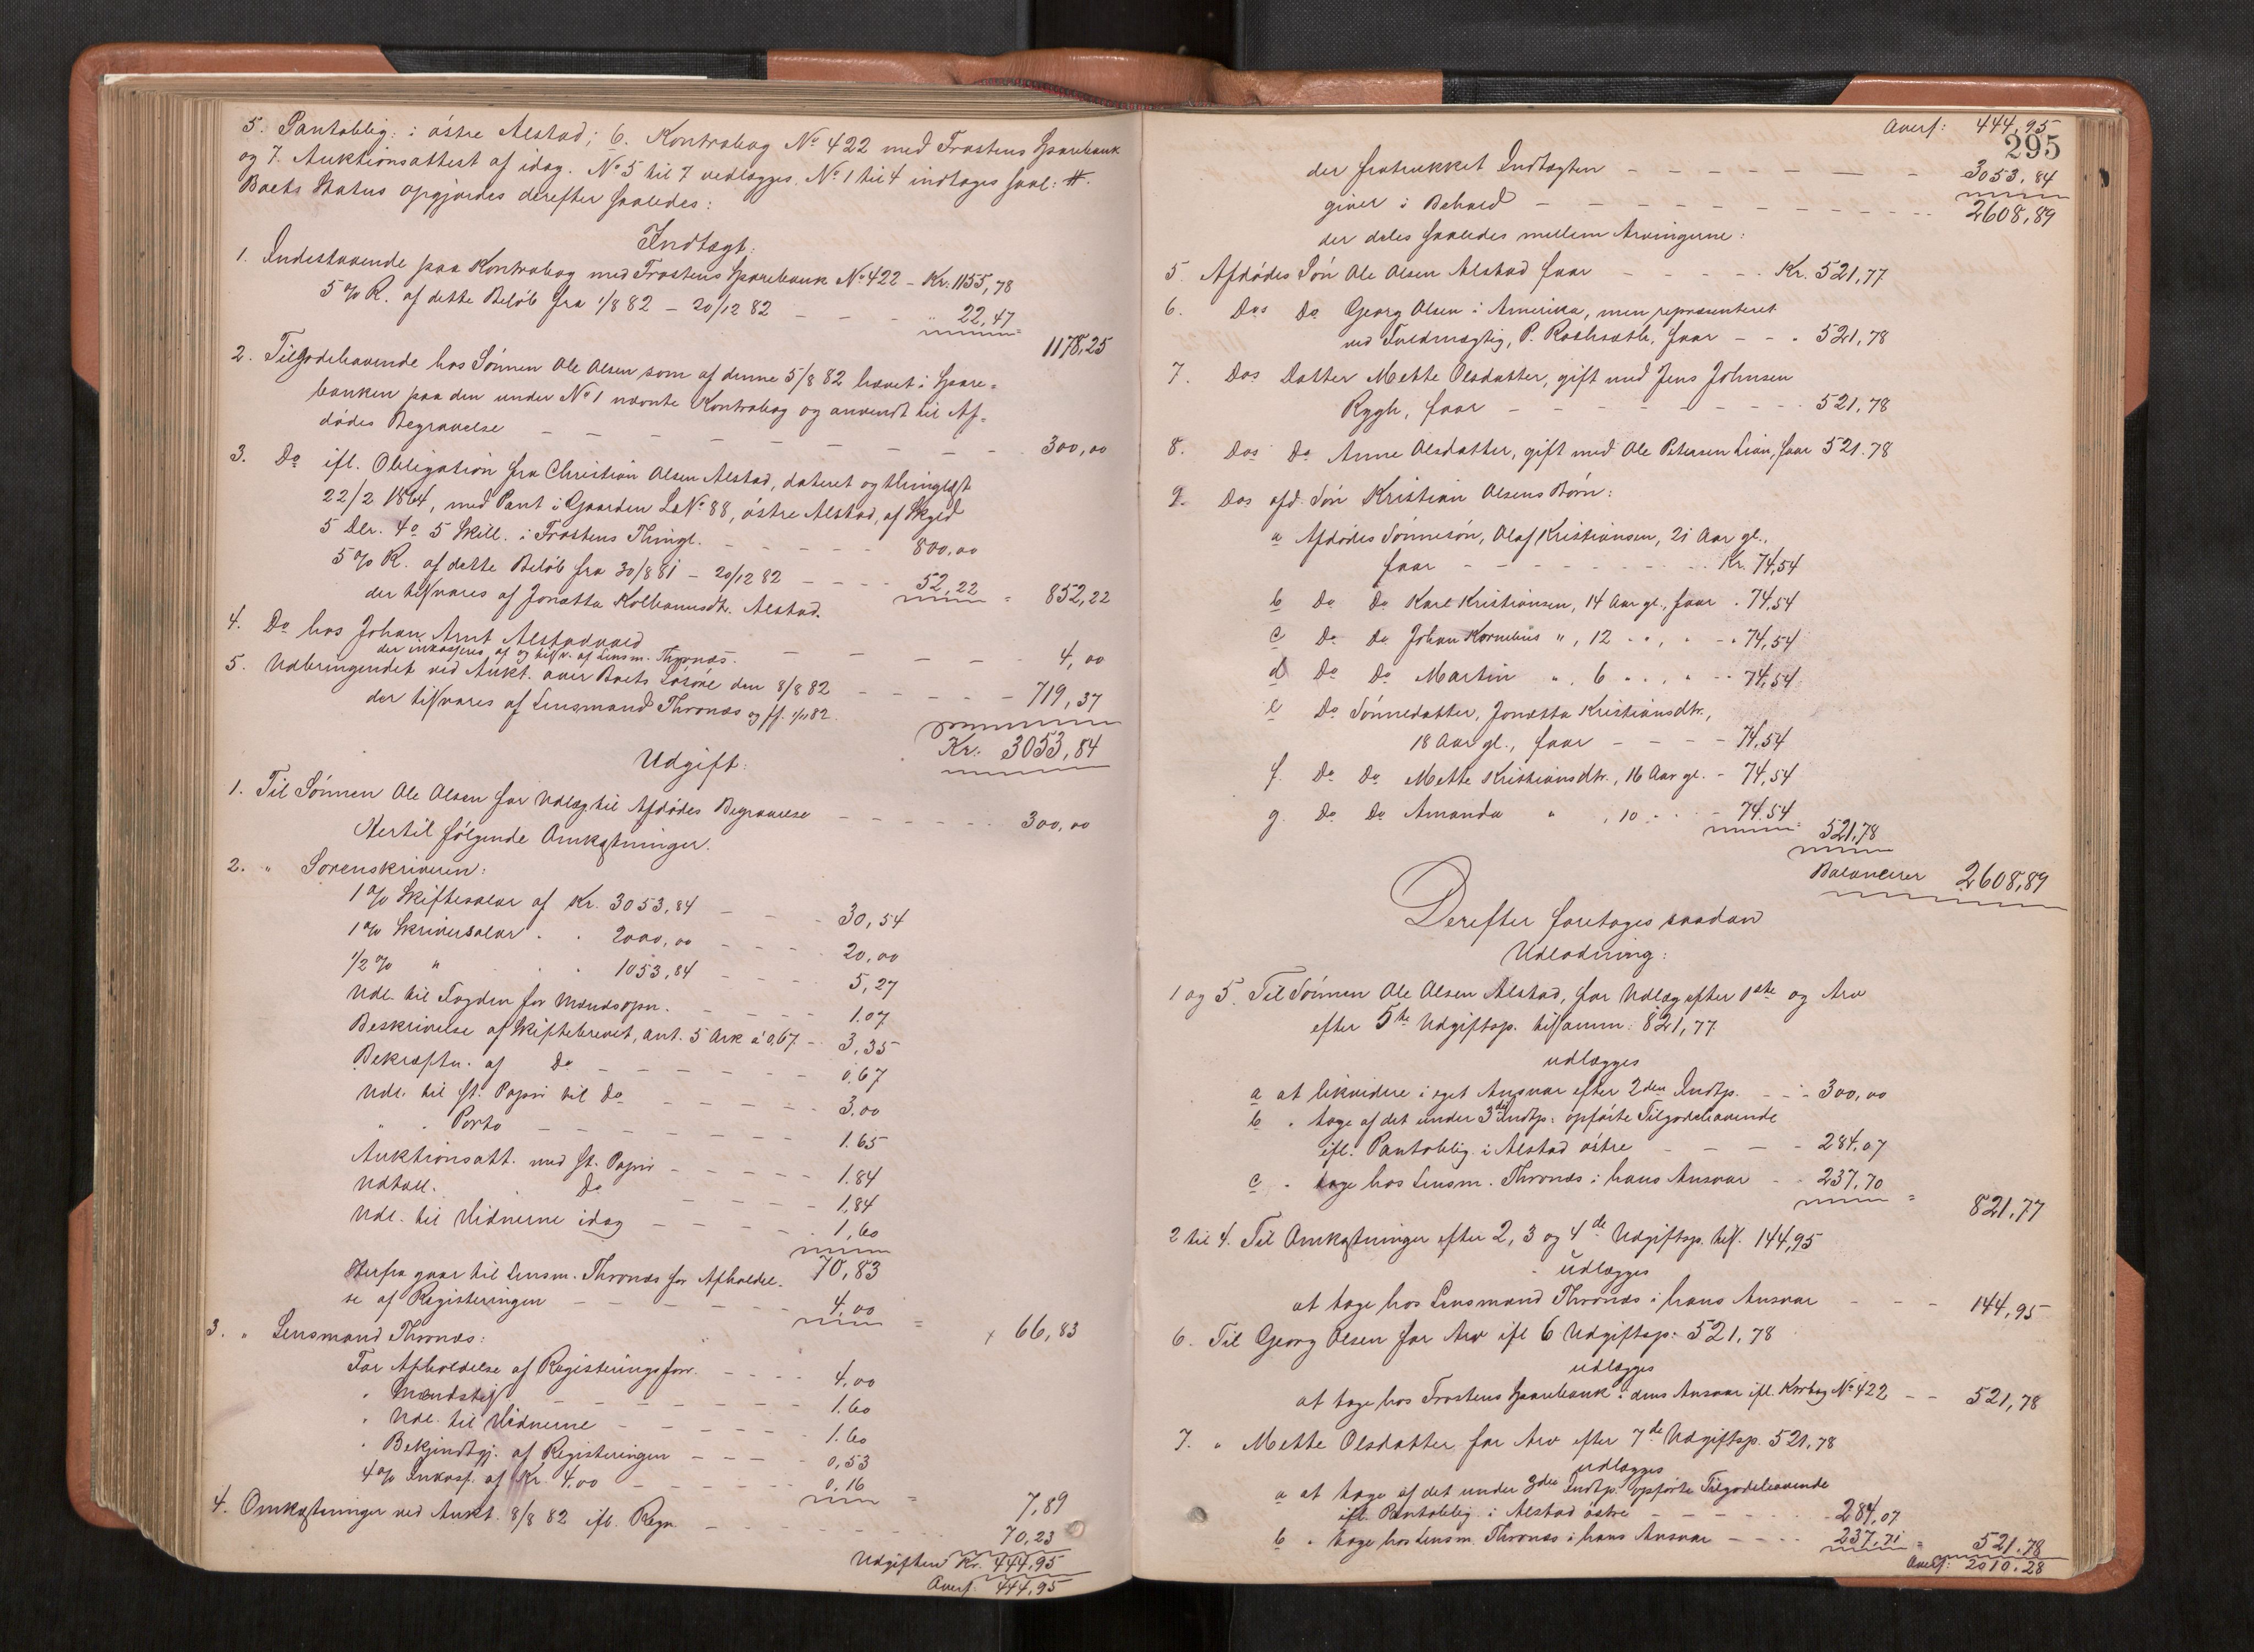 5. Pantoblig: i østre Alstad; 6. Kontrabog No 422 med Frostens Sparebank
og 7. Auktionsattest af idag. No 5 til 7 vedlægges. No 1 til 4 indtages saal: #.
Boets Status opgjordes derefter saaledes:
Indtægt:
1. Indestaaende paa Kontrabog med Frostens Sparebank No 422 - Kr. 1155,78
5 % R. af dette Beløb fra 1/8 82 - 20/12 82 - - - " 22,47
1178,25
2. Tilgodehavende hos Sønnen Ole Olsen som af denne 5/8 82 hævet i Spare=
banken paa den under No 1 nævnte Kontrabog og anvendt til Af=
dødes Begravelse - - - - - - - - 300,00
3. Do ifl. Obligation fra Christian Olsen Alstad, dateret og thinglæst
22/2 1864, med Pant i Gaarden LNo 88, østre Alstad, af Skyld
5 Dlr. 4 o 5 Skill. i Frostens Thingl. - - - - - 800,00
5 % R. af dette Beløb fra 30/8 81 - 20/12 82 - - - - 52,22 = 852,22
der tilsvares af Jonetta Kolbanusdtr. Alstad.
4. Do hos Johan Arnt Alstadvald - - - - - 4,00
der inkasseres af og tilsv. af Lensm. Thronæs.
5. Udbringendet ved Aukt. over Boets Løsøre den 8/8 82 - - - - - 719,37
der tilsvares af Lensmand Thronæs og ff. 1/11 82.
Kr. 3053,84
Udgift:
1. Til Sønnen Ole Olsen for Udlæg til Afdødes Begravelse - - - - - - 300,00
Hertil følgende Omkostninger.
2. " Sorenskriveren:
1 % Skiftesalær af Kr. 3053,84 - - - 30,54
1 % Skriversalær " " 2000,00 - - - 20,00
1/2 % " " " 1053,84 - - - 5,27
Udl. til Fogden for Mandsopn. - - - - 1.07
Beskrivelse af Skiftebrevet, ant. 5 Ark á 0,67. - 3,35
Bekræftn. af Do - - - - - - 0,67
Udl. til st. Papir til Do - - - - - 3,00
" " Porto - - - - - - - 1.65
Auktionsatt. med st. Papir - - - - - 1.84
Udtall. " Do - - - - 1,84
Udl. til Vidnerne idag - - - - - 1,60
70,83
Herfra gaar til Lensm. Thronæs for Afholdel-
se af Registeringen - - - - - - 4,00 = 66,83
3. " Lensmand Thronæs:
For Afholdelse af Registeringsforr. - - - - 4,00
" Mandstegt - - - - - - - 1.60
" Udl. til Vidnerne - - - - - 1.60
" Bekjendtgj. af Registeringen - - - - 0,53
4 % Inkass. af Kr. 4,00 - - - - - 0,16 = 7,89
4. Omkostninger ved Aukt. 8/8 82 ifl. Regn. - - - - - - 70,23
Udgiften Kr. 444,95
Overf: 444,95
Overf: 444,95
295
der fratrukket Indtægten - - - - - - - 3053,84
giver i Behold - - - - - - - - - - 2608,89
der deles saaledes mellem Arvingerne:
5. Afdødes Søn Ole Olsen Alstad faar - - - - - Kr. 521,77
6. Dos Do Georg Olsen i Amerika, men repræsenteret
ved Fuldmægtig, P. Rostesæth, faar - - " 521,78
7. Dos Datter Mette Olsdatter, gift med Jens Johnsen
Rygh, faar - - - - - - - - - 521,78
8. Dos Do Anne Olsdatter, gift med Ole Petersen Lian, faar 521.78
9. Dos afd. Søn Kristian Olsens Børn:
a Afdødes Sønnesøn, Olaf Kristiansen, 21 Aar gl.,
faar - - - - - - - - - Kr. 74,54
b Do Do Karl Kristiansen, 14 Aar gl., faar " 74,54
c Do Do Johan Kornelius ", 12 " ", " - " 74,54
d Do Do Martin ", 6 " ", " - " 74,54
e Do Sønnedatter, Jonetta Kristiansdtr.,
18 Aar gl., faar - - - - 74,54
f. Do Do Mette Kristiansdtr., 16 Aar gl. - 74,54
g. Do Do Amanda " , 10 " " - 74.54 = 521,78
Balancerer 2608,89
Derefter foretoges saadan
Udlodning:
1 og 5. Til Sønnen Ole Olsen Alstad, for Udlæg efter 1ste og Arv
efter 5te Udgiftsp. tilsamm: 821,77
udlægges
a at likvidere i eget Ansvar efter 2den Indtp. - - - 300,00
b " tage af det under 3die Indtp. opførte Tilgodehavende
ifl. Pantoblig. i Alstad østre - - - - 284,07
c " tage hos Lensm. Thronæs i hans Ansvar - - 237.70 = 821,77
2 til 4. Til Omkostninger efter 2, 3 og 4de Udgiftsp. tils. 144,95
udlægges
at tage hos Lensmand Thronæs i hans Ansvar - - - 144,95
6. Til Georg Olsen for Arv ifl 6 Udgiftsp. 521,78
udlægges
at tage hos Frostens Sparebank i dens Ansvar ifl. Kontrbog No 422 - - 521,78
7. " Mette Olsdatter for Arv efter 7de Udgiftsp. 521,78
udlægges
a at tage af det under 3die Indtp. opførte Tilgodehavende
ifl. Pantoblig. i Alstad østre - - - - - 284,07
b " tage hos Lensm. Thronæs i hans Ansvar - - - - 237,71 = 521,78
Overf: 2010.28